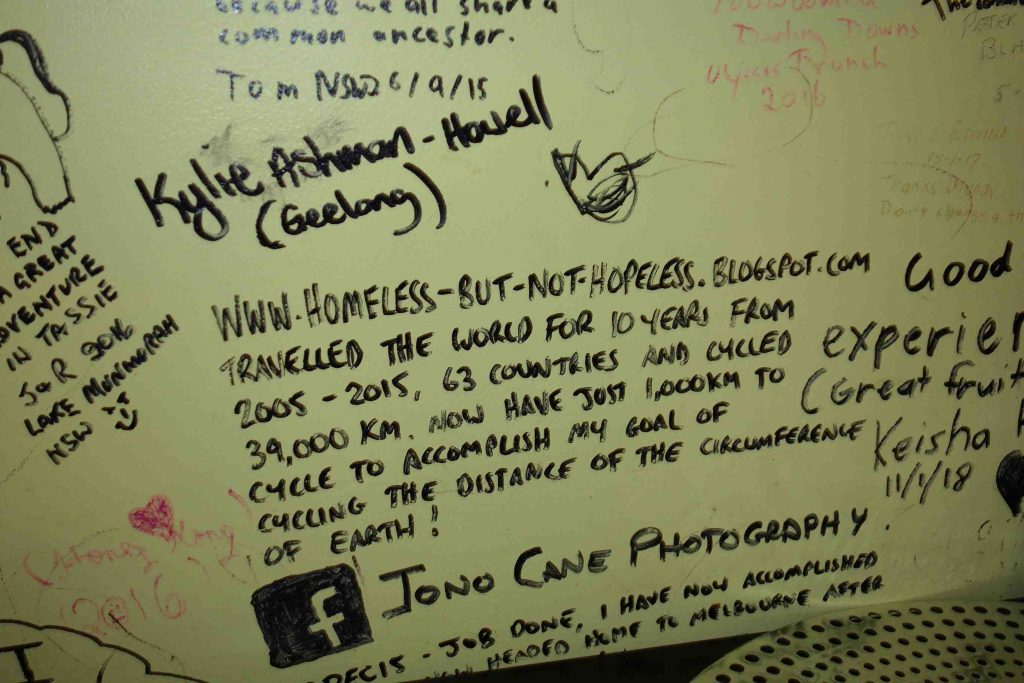 because we all share a
common ancestor.
Tom NSW 6/9/15
Darling Downs
Ulysses Branch
2016
PETER
5-
15-1-17
Thanks
Don't change a
Kylie Ashman-Howell
(Geelong)
END
A GREAT
ADVENTURE
IN TASSIE
J&R 2016
LAKE MUNMORAH
NSW
WWW.HOMELESS-BUT-NOT-HOPELESS.BLOGSPOT.COM
TRAVELLED THE WORLD FOR 10 YEARS FROM
2005-2015, 63 COUNTRIES AND CYCLED
39,000 KM. NOW HAVE JUST 1,000KM TO
CYCLE TO ACCOMPLISH MY GOAL OF
CYCLING THE DISTANCE OF THE CIRCUMFERENCE
OF EARTH!
f JONO CANE PHOTOGRAPHY.
- JOB DONE, I HAVE NOW ACCOMPLISHED
HEADED HOME TO MELBOURNE AFTER
Good
experien
(Great fruit
Keisha
11/1/18
2016
I